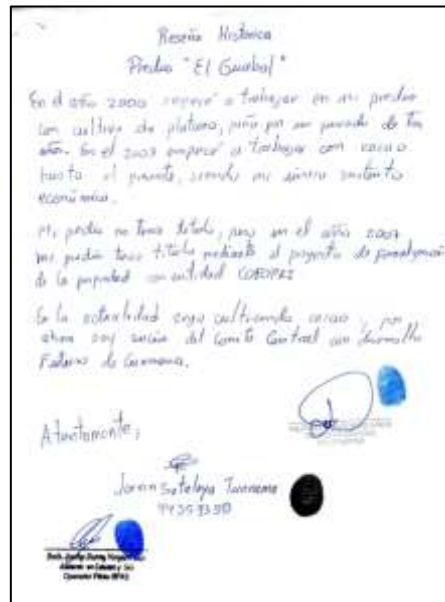 Reseña Histórica
Predio "El Guabal"
En el año 2000 empecé a trabajar en mi predio
con cultivo de platano, piña por un periodo de tres
años. En el 2003 empecé a trabajar con cacao
hasta el presente, siendo mi único sustento
económico.
Mi predio no tenía titulo, pero en el año 2007
mi predio tuvo titulo mediante el proyecto de formalización
de la propiedad con entidad COFOPRI
En la actualidad sigo cultivando cacao y por
ahora soy socia del Comité Central con Desarrollo
de
Atentamente,
Tuanama